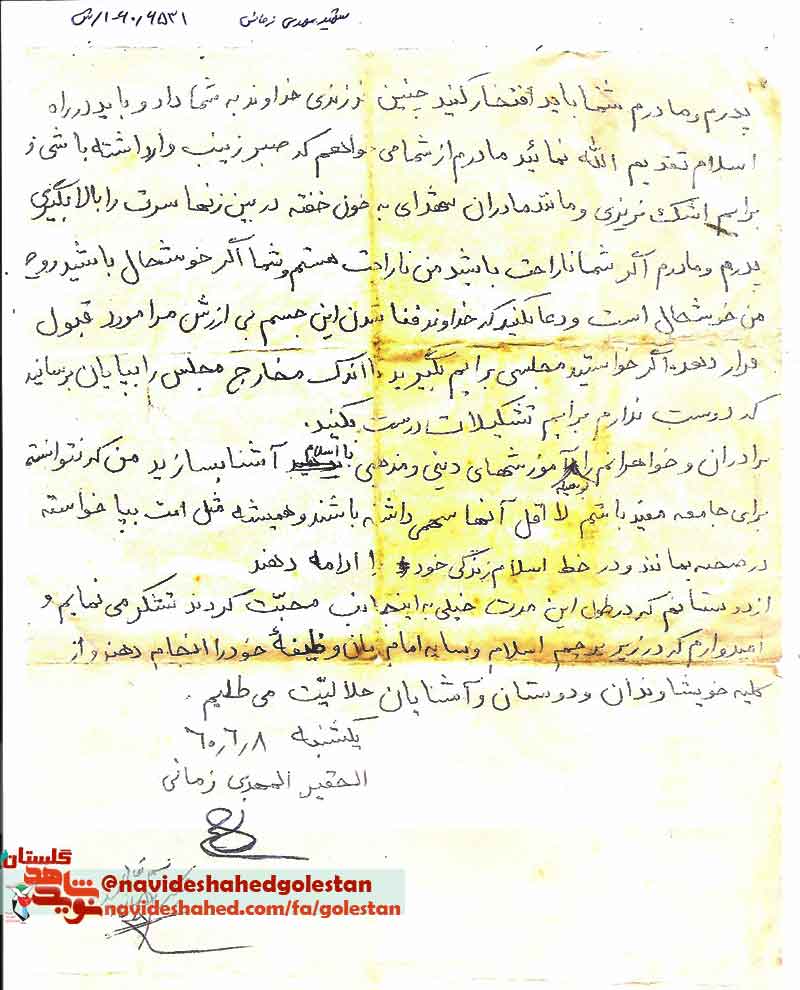 شهید مهدی زمانی ۱-۶۰/۶۵۳۱/ش
پدرم و مادرم شما باید افتخار کنید چنین فرزندی خداوند به شما داد و باید در راه
اسلام تقدیم الله نمائید مادرم از شما می خواهم که صبر زینب وار داشته باشی و
برایم اشک نریزی و مانند مادران شهدای به خون خفته در بین زنها سرت را بالا بگیری
پدرم و مادرم اگر شما ناراحت باشید من ناراحت هستم و شما اگر خوشحال باشید روح
من خوشحال است و دعا بکنید که خداوند فنا شدن این جسم بی ارزش مرا مورد قبول
قرار دهد. اگر خواستید مجلسی برایم بگیرید با اندک مخارج مجلس را بپایان برسانید
که دوست ندارم برایم تشکیلات درست بکنید.
برادران و خواهرانم را بوسیله آموزشهای دینی و مذهبی با اسلام آشنا بسازید من که نتوانستم
برای جامعه مفید باشم لا اقل آنها سهمی داشته باشند و همیشه مثل امت بپا خواسته
در صحنه بمانند و در خط اسلام زندگی خود را ادامه دهند
از دوستانم که در طول این مدت خیلی به اینجانب محبت کردند تشکر می نمایم و
امیدوارم که در زیر پرچم اسلام و سایه امام زمان وظیفهٔ خود را انجام دهند و از
کلیه خویشاوندان و دوستان و آشنایان حلالیّت می طلبم.
یکشنبه ۶۰/۶/۸
الحقیر المهدی زمانی
گلستان
نوید شاهد
@navideshahedgolestan
navideshahed.com/fa/golestan